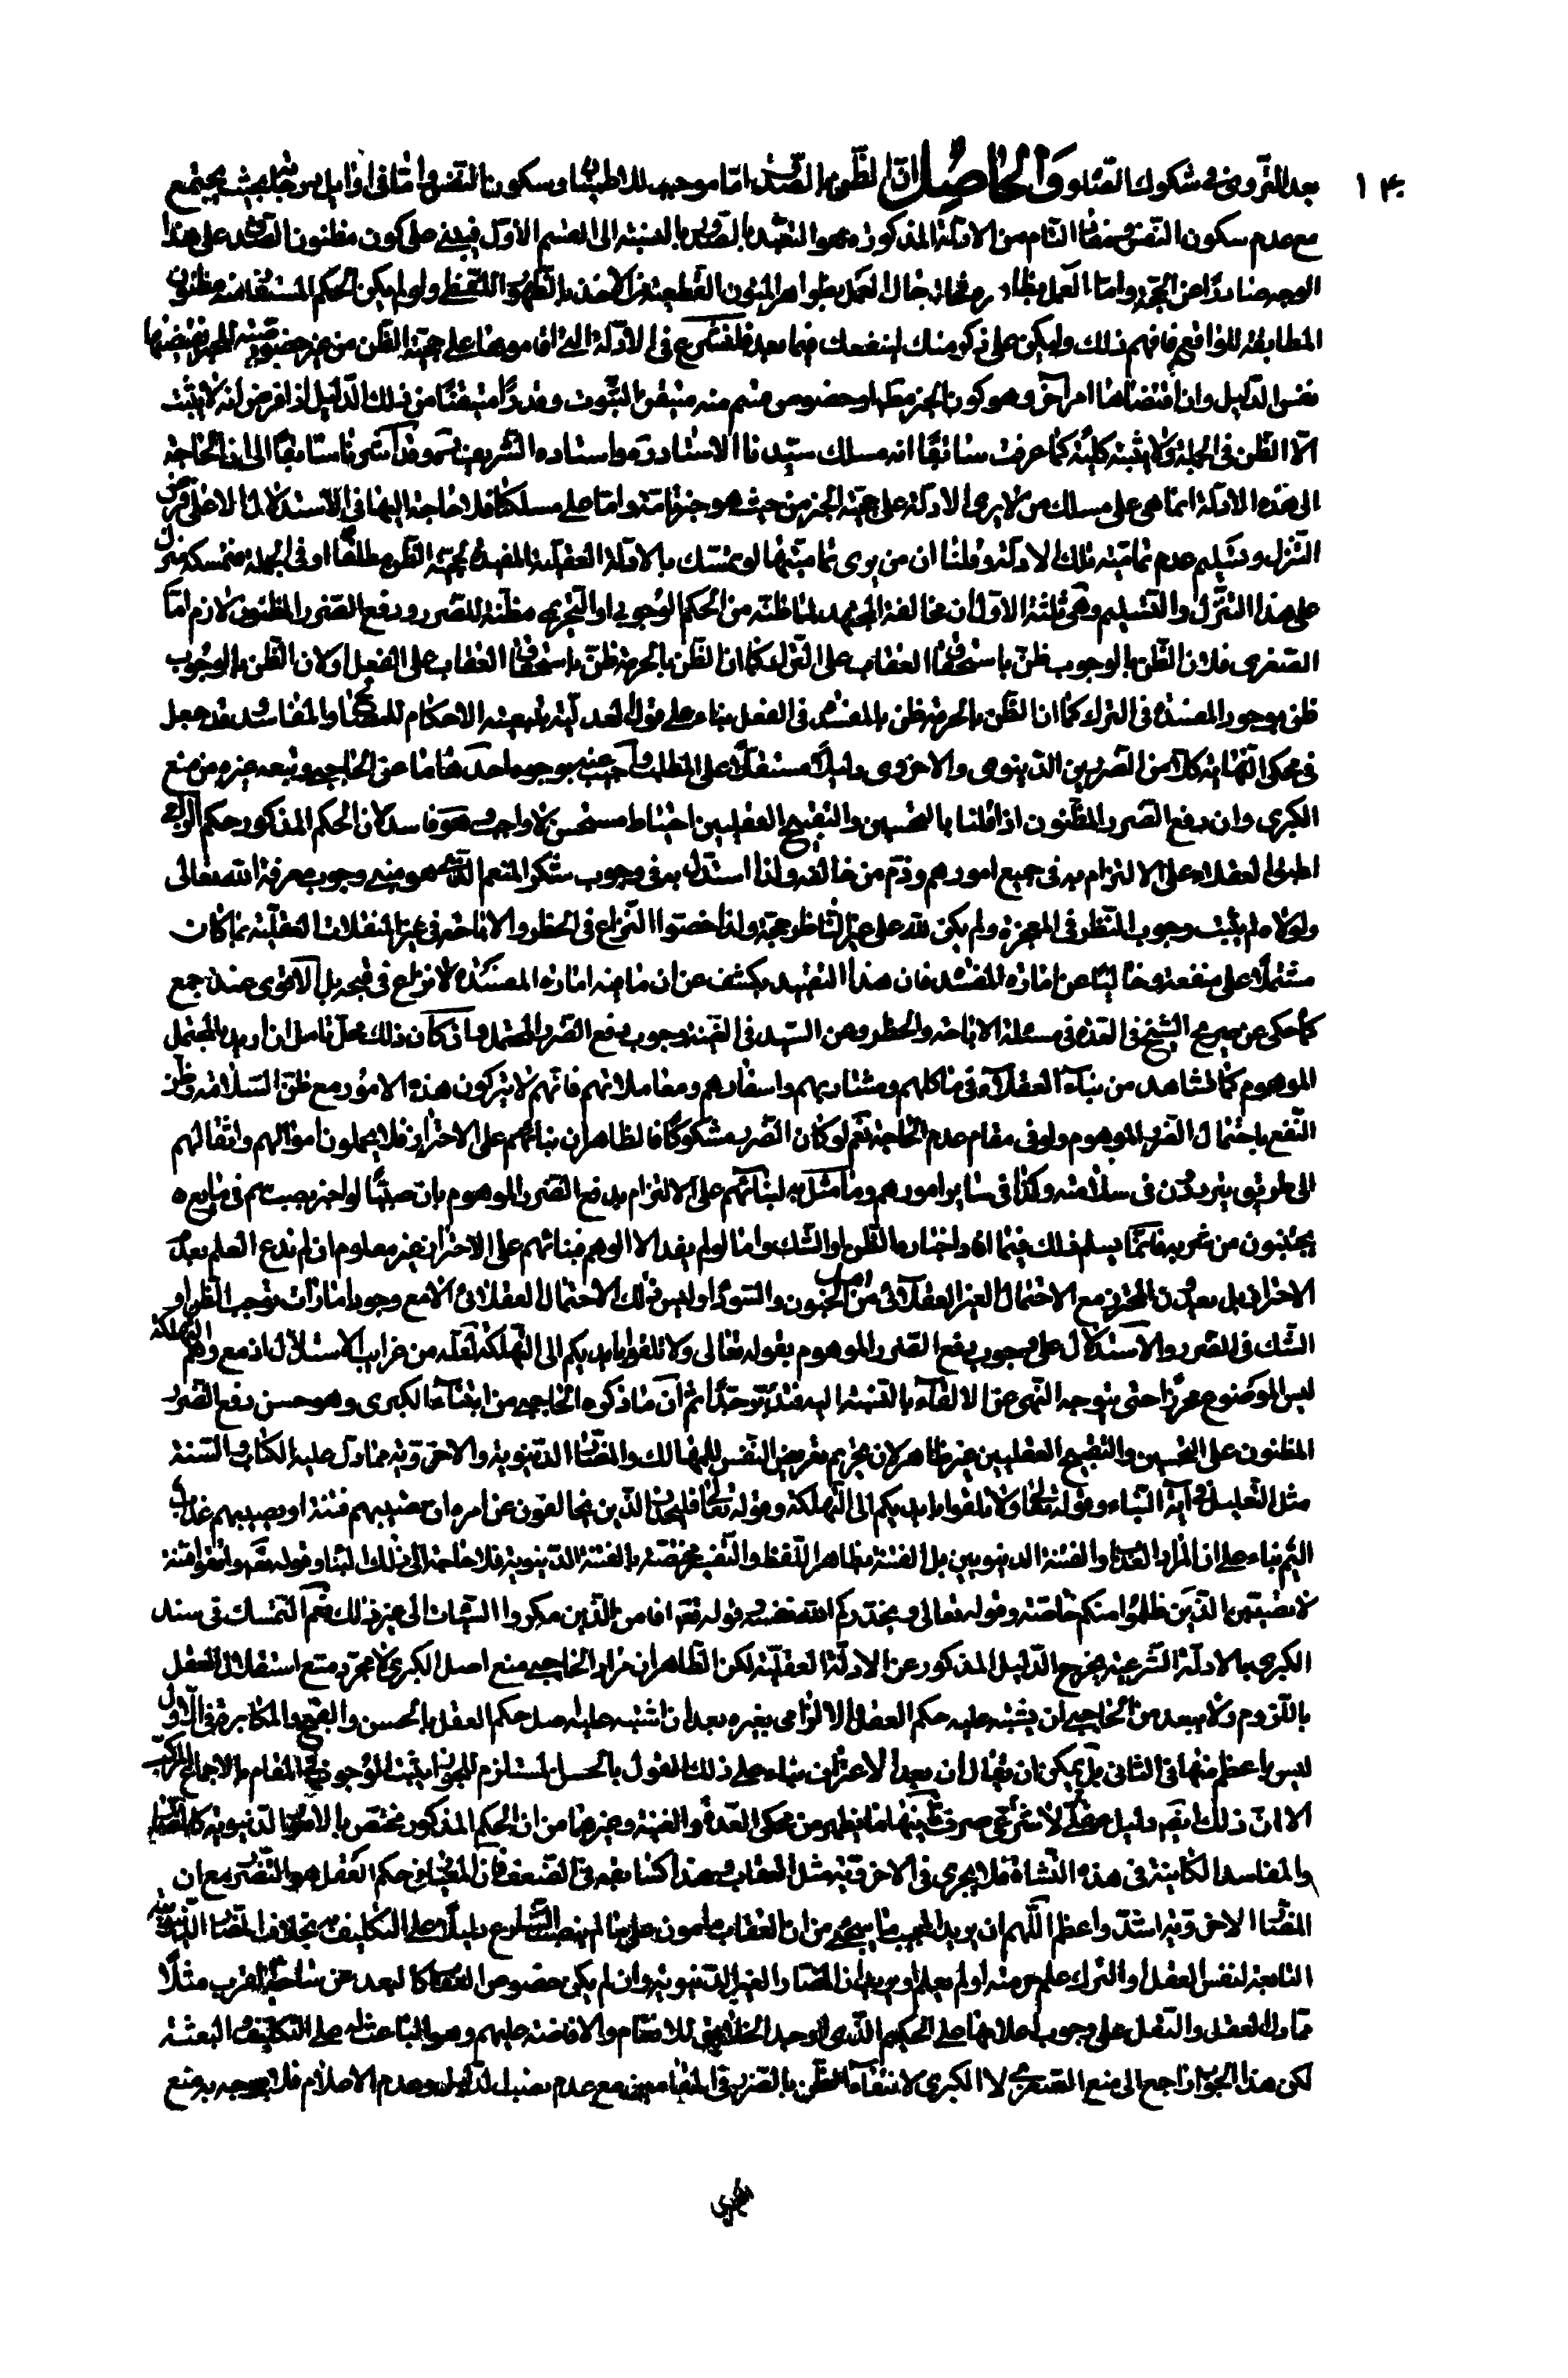 ١٤٠
بعد التروي في شكوك الصلوة والحاصل ان الظن بالصدق اما موجب للاطمينان وسكون النفس واما في اوايل مرجحانه بحيث يجتمع
مع عدم سكون النفس ومفاد التام من الادلة المذكورة هو التعبد بالصدور بالنسبة الى القسم الاول فيبنى على كون مظنون الصدور على هذا
الوجه صادرا عن الحجة واما العمل بظاهره فحاله حال العمل بظواهر المتون القطعية من الاخذ بالظهور اللفظي ولو لم يكن الحكم المستفاد منه مظنون
المطابقة للواقع فافهم ذلك وليكن على ذكر منك لينفعك فيما بعد فلنشرع في الادلة التي اقاموها على حجية الظن من غير خصوصية
نفس الدليل وان اقتضاها امر اخر وهو كون الخبر مطلقا او خصوص قسم منه متيقن الثبوت وقدرا متيقنا من ذلك الدليل اذا فرض انه لا يثبت
الا الظن في الجملة ولا يثبته كلية كما عرفت سابقا انه مسلك سيدنا الاستاد ره واستاده الشريف ره وقد اشرنا سابقا الى ان الحاجة
الى هذه الادلة انما هي على مسلك من لا يرى الادلة على حجية الخبر من حيث هو خبر تامة واما على مسلكنا فلا حاجة اليها في الاستدلال الا على فرض
التنزل وتسليم عدم تمامية تلك الادلة وقلنا ان من يرى تماميتها لو تمسك بالادلة العقلية المفيدة لحجية الظن مطلقا او في الجملة فتمسكه مبني
على هذا التنزل والتسليم وهي ثلثة الاول ان مخالفة المجتهد لما ظنه من الحكم الوجوبي او التحريمي مظنة للضرر ودفع الضرر المظنون لازم اما
الصغرى فلان الظن بالوجوب ظن باستحقاق العقاب على الترك كما ان الظن بالحرمة ظن باستحقاق العقاب على الفعل ولان الظن بالوجوب
ظن بوجود المفسدة في الترك كما ان الظن بالحرمة ظن بالمفسدة في الفعل بناء على قول العدلية بتبعية الاحكام للمصالح والمفاسد وقد جعل
في محكي النهاية كلا من الضررين الدنيوي والاخروي دليلا مستقلا على المطلب واجيب عنه بوجوه احدها ما عن الحاجبي وتبعه غيره من منع
الكبرى وان دفع الضرر المظنون اذا قلنا بالتحسين والتقبيح العقليين احتياط مستحسن لا واجب وهو فاسد لان الحكم المذكور حكم الزامي
اطبق العقلاء على الالتزام به في جميع امورهم وذم من خالفه ولذا استدل به في وجوب شكر المنعم الذي هو مبنى وجوب معرفة الله تعالى
ولولاه لم يثبت وجوب النظر في المعجزة ولم يكن لله على غير الناظر حجة ولذا خصوا النزاع في الحظر والاباحة في غير المستقلات العقلية بما كان
مشتملا على منفعة وخاليا عن امارة المفسدة فان هذا التقييد يكشف عن ان ما فيه امارة المفسدة لا نزاع في قبحه بل الاقوى عند جمع
كما حكى عن صريح الشيخ في العدة في مسئلة الاباحة والحظر وعن السيد في الغنية وجوب دفع الضرر المحتمل وان كان ذلك محل تامل ان اريد بالمحتمل
الموهوم كما نشاهد من بناء العقلاء في ماكلهم ومشاربهم واسفارهم ومعاملاتهم فانهم لا يتركون هذه الامور مع ظن السلامة وظن
النفع باحتمال الضرر الموهوم ولو في مقام عدم الحاجة نعم لو كان الضرر مشكوكا فالظاهر ان بنائهم على الاحتراز فلا يحملون اموالهم واثقالهم
الى طريق يترددون في سلامته وكذا في ساير امورهم وما مثل به لبنائهم على الالتزام بدفع الضرر الموهوم بان صبيا لو اخبر بصب سم في مايع
يجتنبون من شربه فانما يسلم ذلك فيما افاد اخباره الظن او الشك واما لو لم يفد الا الوهم فبنائهم على الاحتراز غير معلوم ان لم ندع العلم بعدم
الاحتراز بل يعدون المحترز مع الاحتمال الغير العقلائي من اهل الجنون والسوداء وليس ذلك الاحتمال العقلائي الا مع وجود امارات توجب الظن او
الشك في الضرر والاستدلال على وجوب دفع الضرر الموهوم بقوله تعالى ولا تلقوا بايديكم الى التهلكة لعله من غرايب الاستدلال اذ مع وهم التهلكة
ليس الموضوع محرزا حتى يتوجه النهي عن الالقاء بالنسبة اليه فتدبر جدا ثم ان ما ذكره الحاجبي من ابتناء الكبرى وهو حسن دفع الضرر
المظنون على التحسين والتقبيح العقليين غير ظاهر لان تحريم تعريض النفس للمهالك والمضار الدنيوية والاخروية مما دل عليه الكتاب والسنة
مثل التعليل في آية النباء وقوله تعالى ولا تلقوا بايديكم الى التهلكة وقوله تعالى فليحذر الذين يخالفون عن امره ان تصيبهم فتنة او يصيبهم عذاب
اليم بناء على ان المراد العذاب والفتنة الدنيويين بل الفتنة بظاهر اللفظ والتفسير مختصة بالفتنة الدنيوية فلا حاجة الى ذلك البناء وقوله تعالى واتقوا فتنة
لا تصيبن الذين ظلموا منكم خاصة وقوله تعالى ويحذركم الله نفسه وقوله تعالى افامن الذين مكروا السيئات الى غير ذلك نعم التمسك في سند
الكبرى بالادلة الشرعية يخرج الدليل المذكور عن الادلة العقلية لكن الظاهر ان مراد الحاجبي منع اصل الكبرى لا مجرد منع استقلال العقل
باللزوم ولا يبعد من الحاجبي ان يشتبه عليه حكم العقل الالزامي بغيره بعد ان اشتبه عليه اصل حكم العقل بالحسن والقبح والمكابرة في الاول
ليس باعظم منها في الثاني بل يمكن ان يقال ان بعد الاعتراف بناء على ذلك القول بالحسن المستلزم للجواز يثبت الوجوب في المقام بالاجماع المركب
الا ان ذلك يصير دليل عقلي لا شرعي صرف ثانيها ما يظهر من محكي العدة والغنية وغيرهما من ان الحكم المذكور مختص بالامور الدنيوية كالمضار
والمفاسد الكاينة في هذه النشاة فلا يجري في الاخروية مثل العقاب وهذا كسابقه في الضعف فان المناط في حكم العقل هو التضرر مع ان
المضار الاخروية اشد واعظم اللهم ان يريد المجيب ما سيجيء من ان العقاب مامون على ما لم ينصب الشارع دليلا على التكليف به بخلاف المضار الدنيوية
التابعة لنفس الفعل او الترك علم حرمته او لم يعلم او يريد ان المضار الغير الدنيوية وان لم يكن خصوص العقاب كالبعد عن ساحة القرب مثلا
مما دل العقل والنقل على وجوب اعلامها على الحكيم الذي اوجد الخلايق للانعام والافاضة عليهم وهو الباعث له على التكليف والبعثة
لكن هذا الجواب راجع الى منع الصغرى لا الكبرى لانتفاء الظن بالضرر في المقامين مع عدم نصب الدليل وعدم الاعلام فلا يتوجه به منع
الكبرى